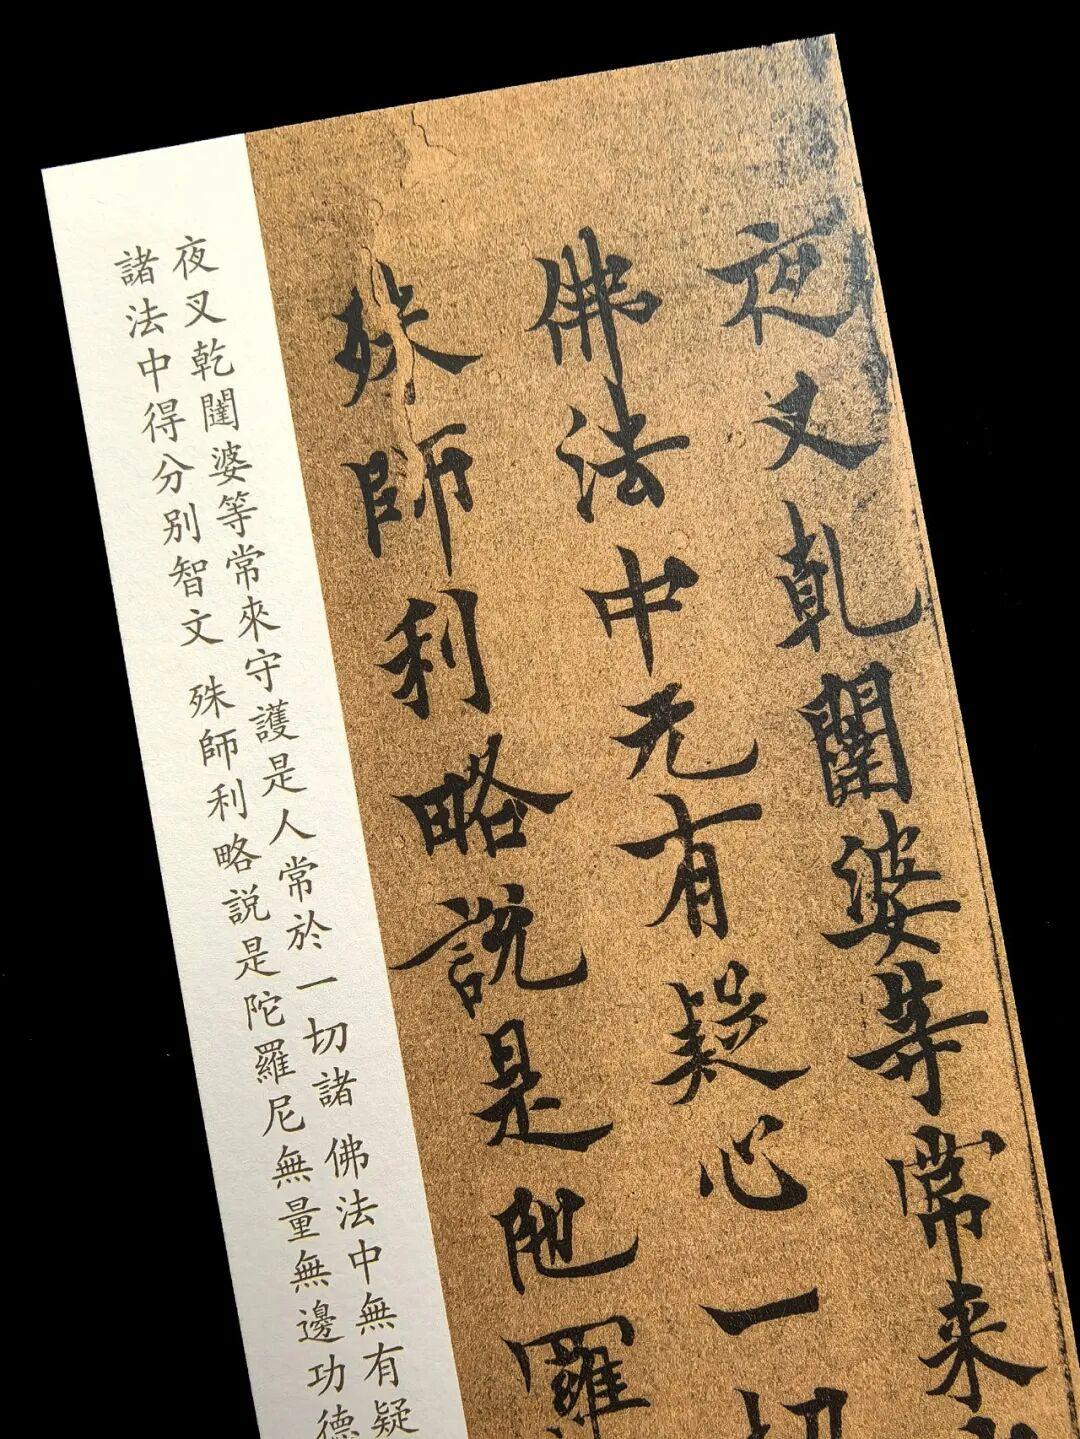 夜叉乾闥婆等常来
佛法中无有疑心一切
殊師利略說是陁羅
夜叉乾闥婆等常來守護是人常於一切諸 佛法中無有疑
諸法中得分别智文 殊師利略説是陀羅尼無量無邊功德